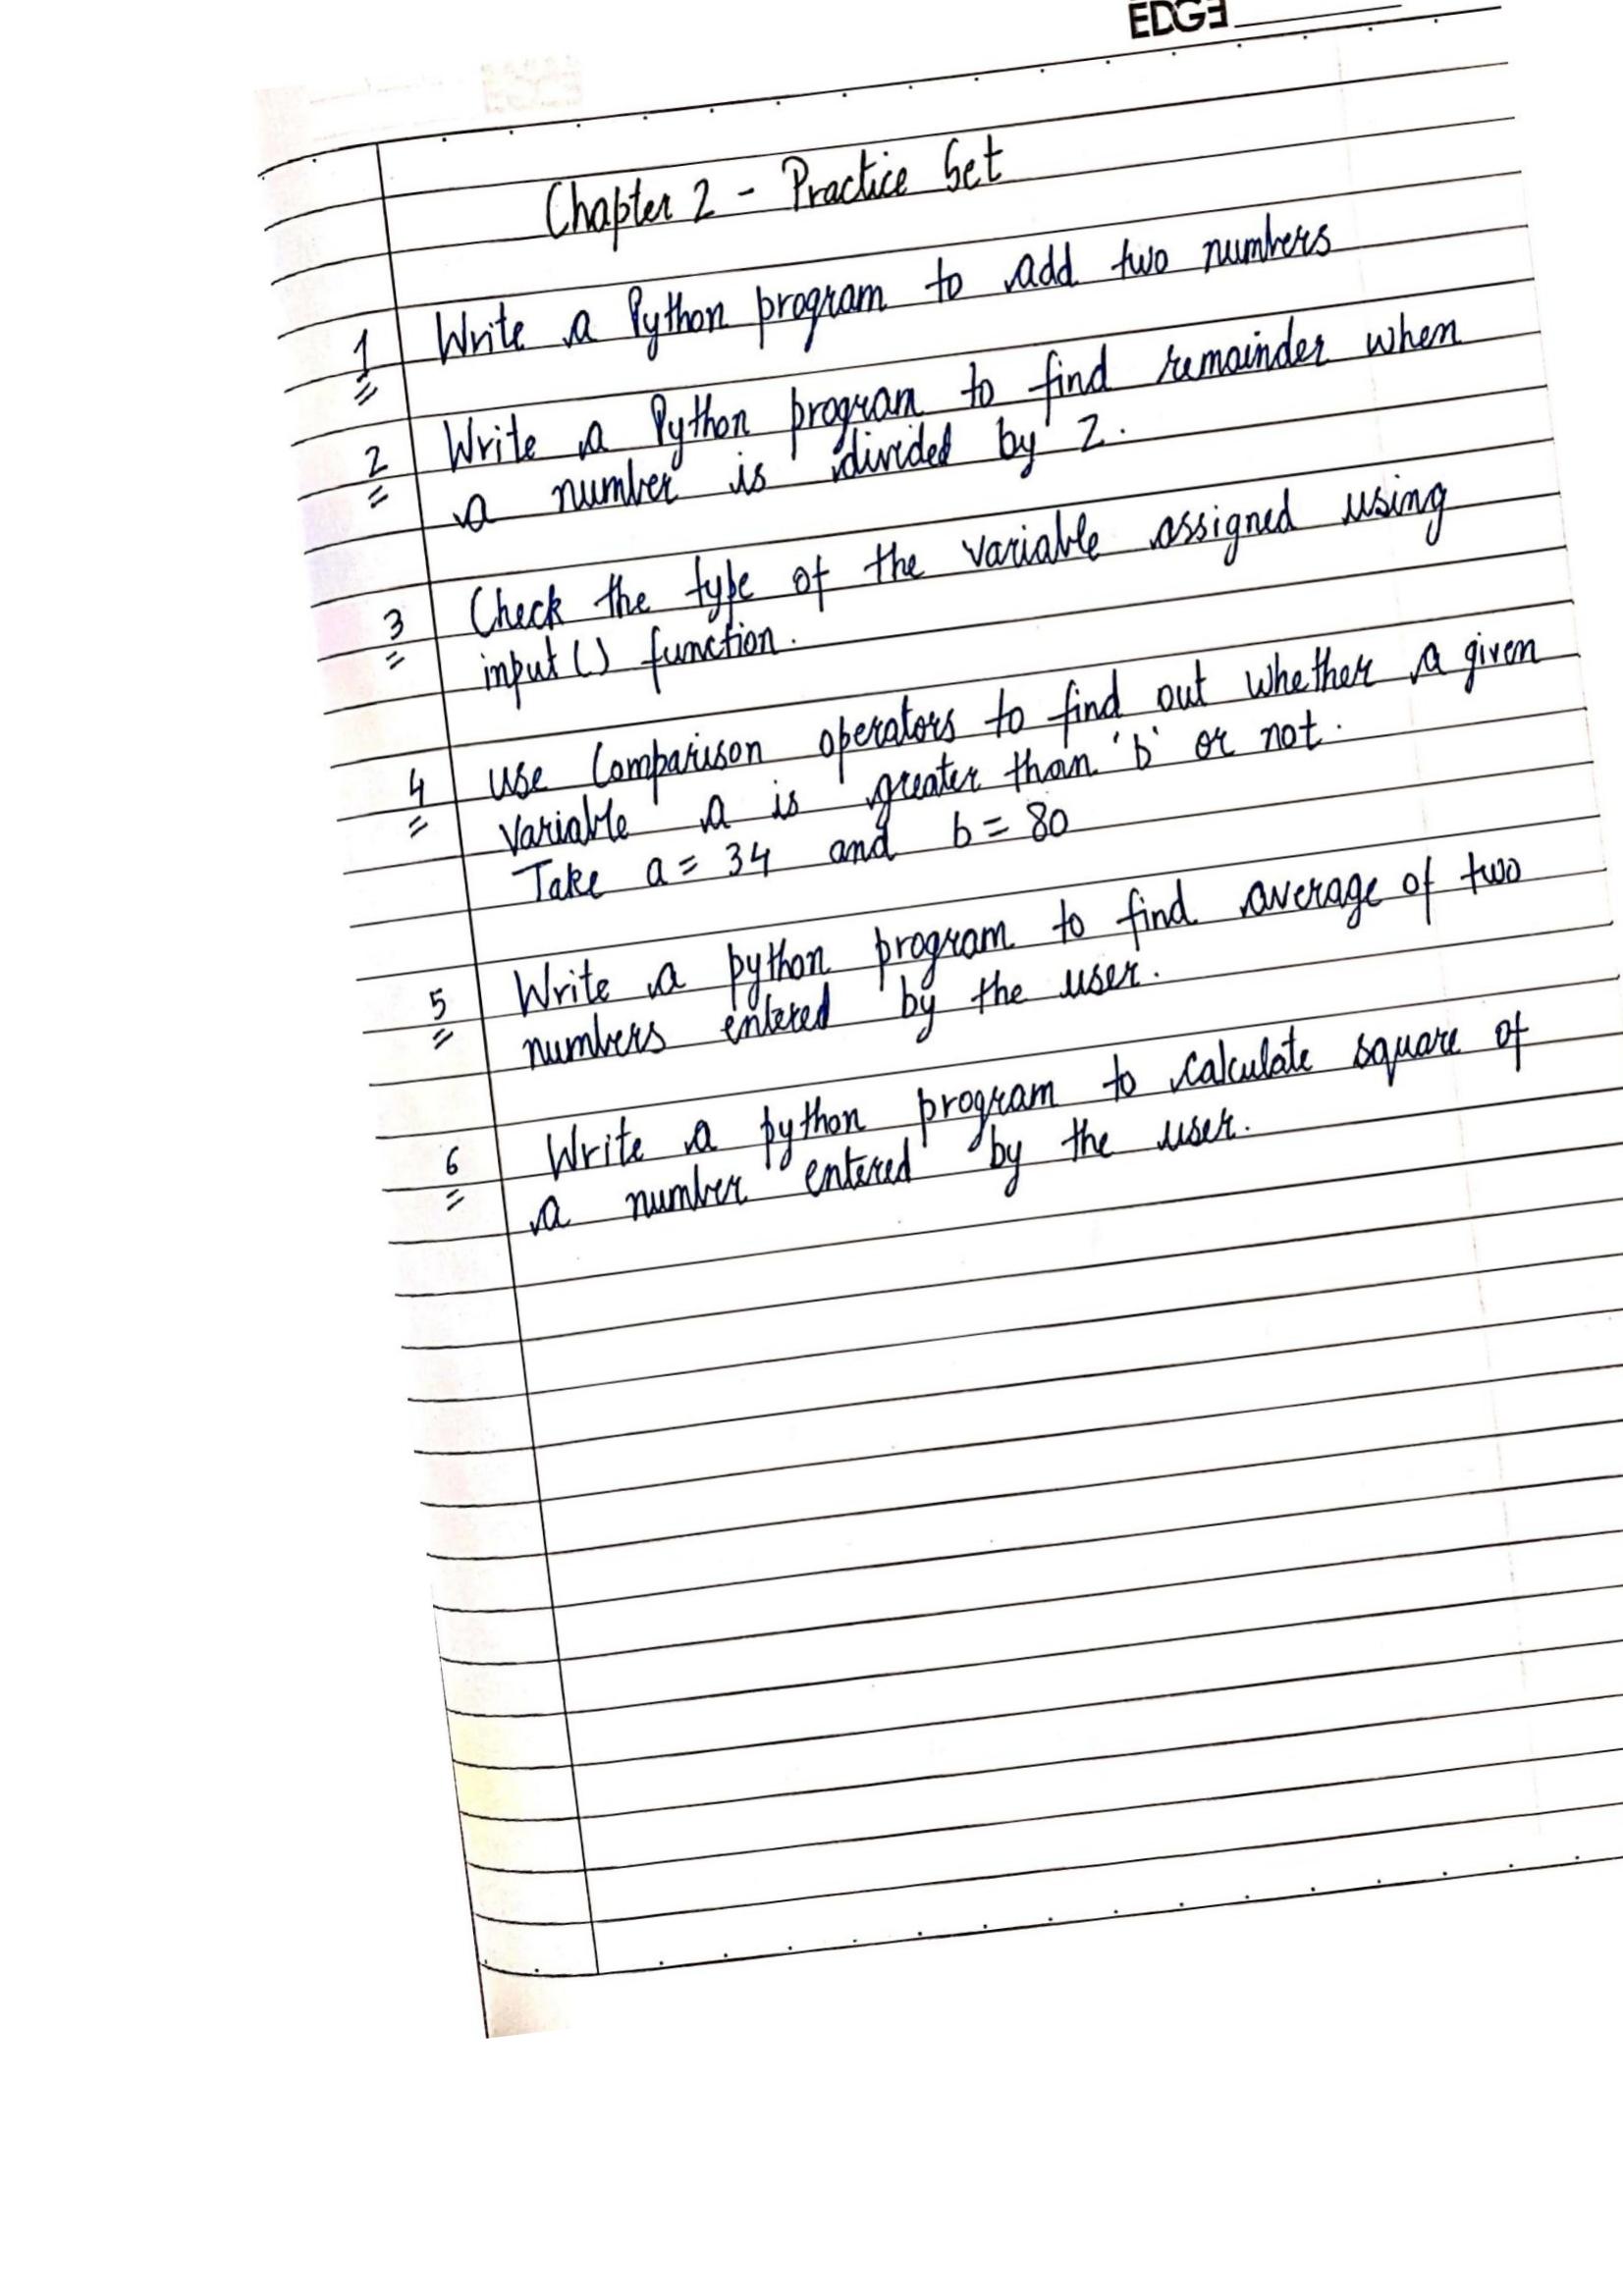 EDGE
Chapter 2 - Practice Set
1 Write a Python program to add two numbers
2 Write a Python program to find remainder when
a number is divided by 2.
3 Check the type of the variable assigned using
input() function.
4 use Comparison operators to find out whether a given
variable a is greater than 'b' or not.
Take a = 34 and b = 80
5 Write a python program to find average of two
numbers entered by the user.
6 Write a python program to calculate square of
a number entered by the user.